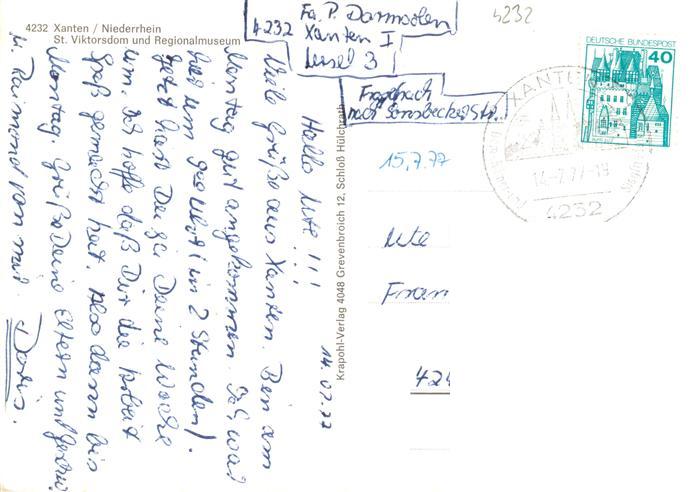 4232 Xanten / Niederrhein
St. Viktorsdom und Regionalmuseum
4232
Fa. P.
Xanten I
3
4232
DEUTSCHE BUNDESPOST
40
XANTEN
14.-7.77-19
4232
15.7.77
Ute
424
Krapohl-Verlag 4048 Grevenbroich 12, Schloß Hülchrath
14.07.77
Hallo Ute!!!
Viele Grüße aus Xanten. Bin am
Montag gut angekommen. Ja, war
hier um (in 2 Stunden)!
Jetzt hast Du ja Deine Woche
um. Ich hoffe daß Dir die Arbeit
Spaß gemacht hat. Also dann bis
Montag. Grüße Deine Eltern und
u. Raimund von mir. Doris.